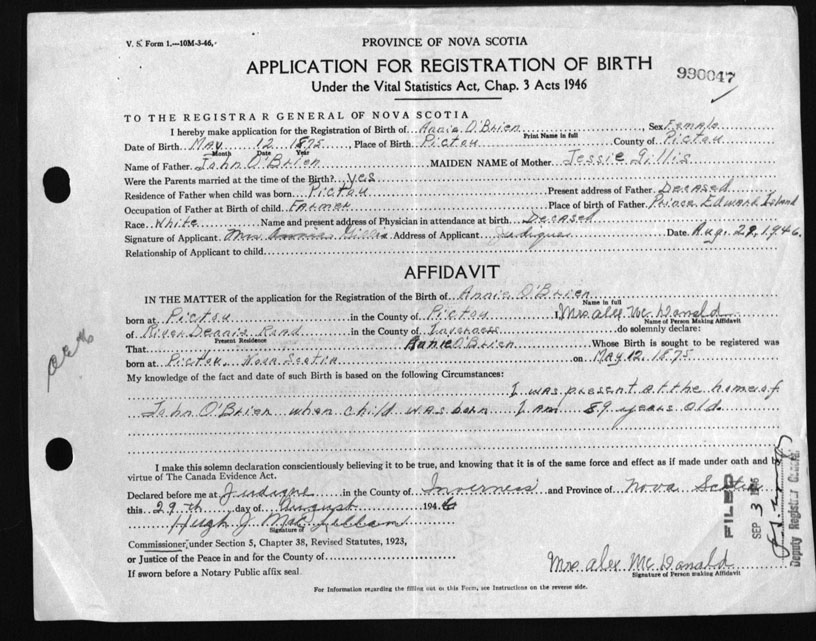 V. S. Form 1.—10M-3-46,
PROVINCE OF NOVA SCOTIA
APPLICATION FOR REGISTRATION OF BIRTH
990047
Under the Vital Statistics Act, Chap. 3 Acts 1946
TO THE REGISTRAR GENERAL OF NOVA SCOTIA
I hereby make application for the Registration of Birth of Annie O'Brien, Sex Female
Print Name in full
Date of Birth May 12 1875, Place of Birth Pictou County of Pictou
Month Date Year
Name of Father John O'Brien MAIDEN NAME of Mother Jessie Gillis
Were the Parents married at the time of the Birth? yes
Residence of Father when child was born Pictou Present address of Father Decased
Occupation of Father at Birth of child Farmer Place of birth of Father Prince Edward Island
Race White Name and present address of Physician in attendance at birth Decased
Signature of Applicant Mrs Annie Gillis Address of Applicant Judique Date Aug. 29, 1946.
Relationship of Applicant to child
AFFIDAVIT
IN THE MATTER of the application for the Registration of the Birth of Annie O'Brien
Name in full
born at Pictou in the County of Pictou I, Mrs. Alex McDonald
Name of Person Making Affidavit
of River Dennis Road in the County of Inverness do solemnly declare:
Present Residence
That Annie O'Brien Whose Birth is sought to be registered was
born at Pictou, Nova Scotia on May 12, 1875
My knowledge of the fact and date of such Birth is based on the following Circumstances:
I was present at the home of
John O'Brien when child was born I am 89 years old.
I make this solemn declaration conscientiously believing it to be true, and knowing that it is of the same force and effect as if made under oath and by
virtue of The Canada Evidence Act.
Declared before me at Judique in the County of Inverness and Province of Nova Scotia
this 29th day of August 1946
Hugh J. MacLellan
Signature of
Commissioner, under Section 5, Chapter 38, Revised Statutes, 1923,
or Justice of the Peace in and for the County of
If sworn before a Notary Public affix seal
Mrs. Alex McDonald
Signature of Person making Affidavit
For Information regarding the filling out of this Form, see Instructions on the reverse side.
FILED
SEP 3 1946
Deputy Registrar General